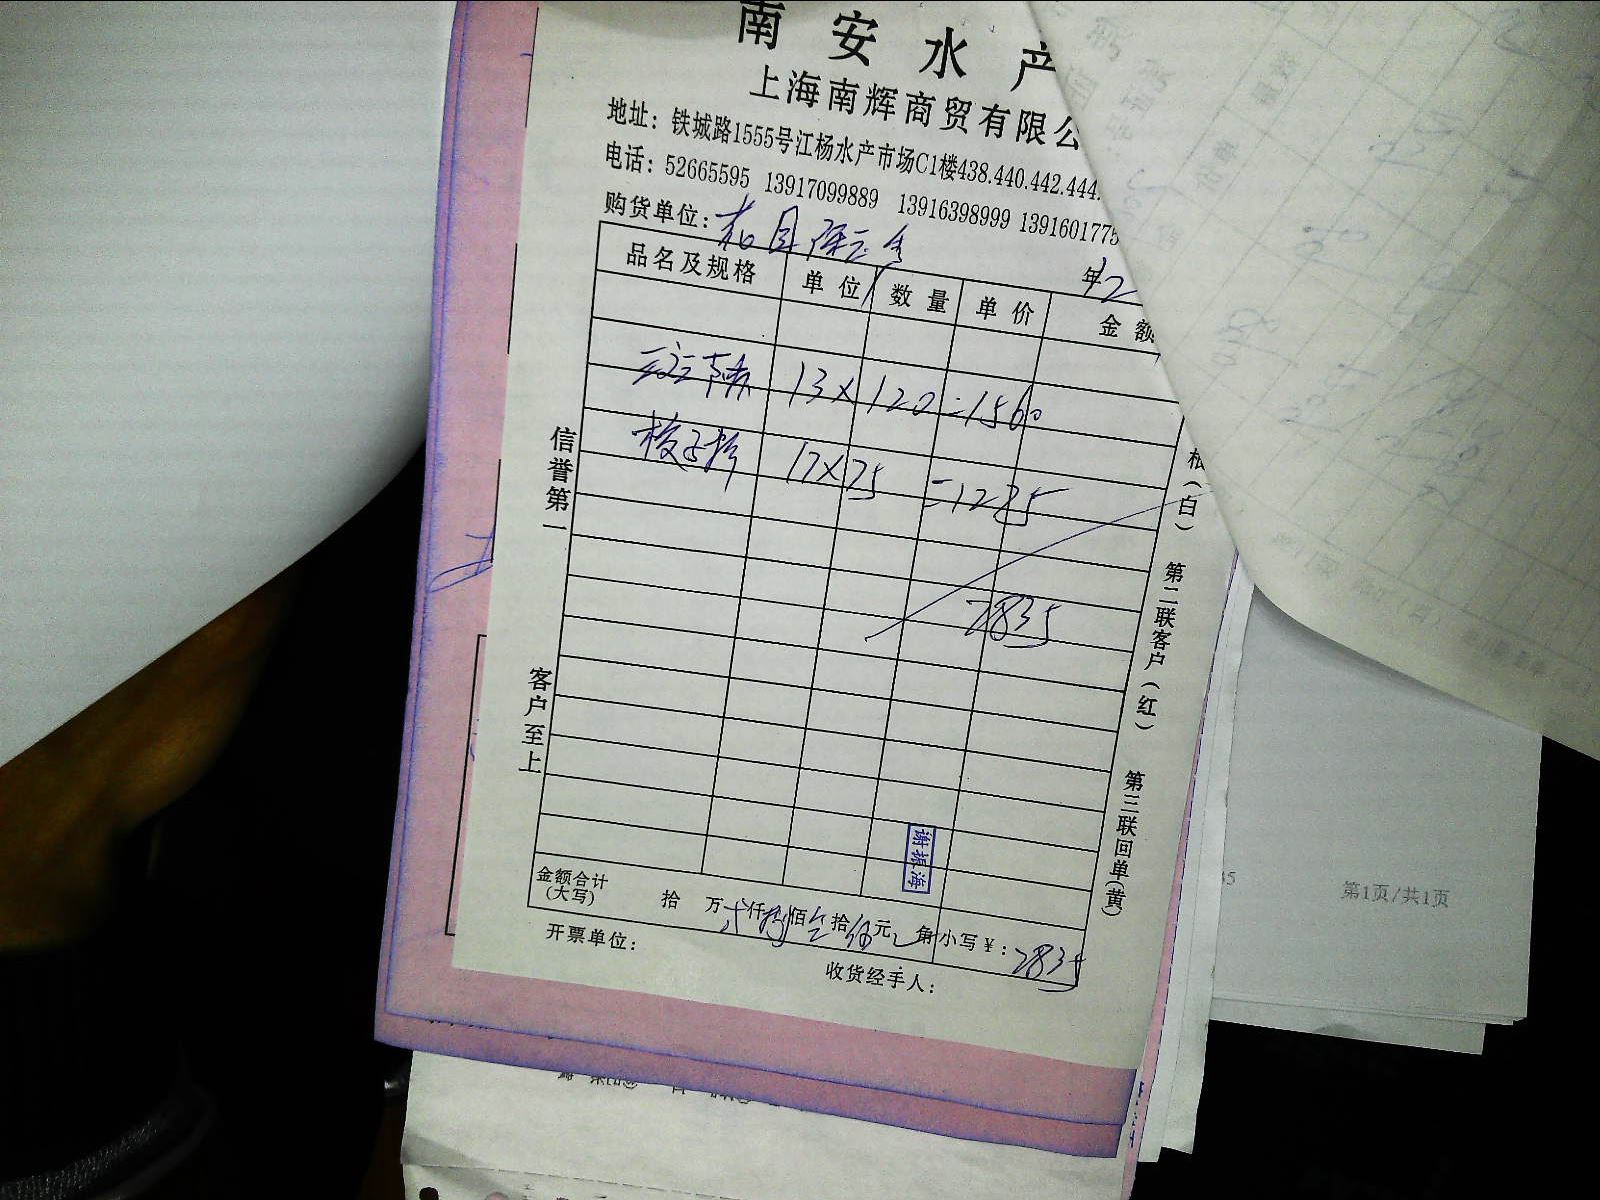 南安水产
上海南辉商贸有限公
地址：铁城路1555号江杨水产市场C1楼438.440.442.444.
电话：52665595 13917099889 13916398999 1391601775
购货单位：
年12
品名及规格 单位 数量 单价 金额
13×120=1560
梭子蟹 17×75=1275
2835
信誉第一
客户至上
根（白） 第二联客户（红） 第三联回单（黄）
谢振海
金额合计（大写） 拾 万 仟 捌佰 叁拾伍元 角 小写￥：2835
开票单位：
收货经手人：
第1页/共1页